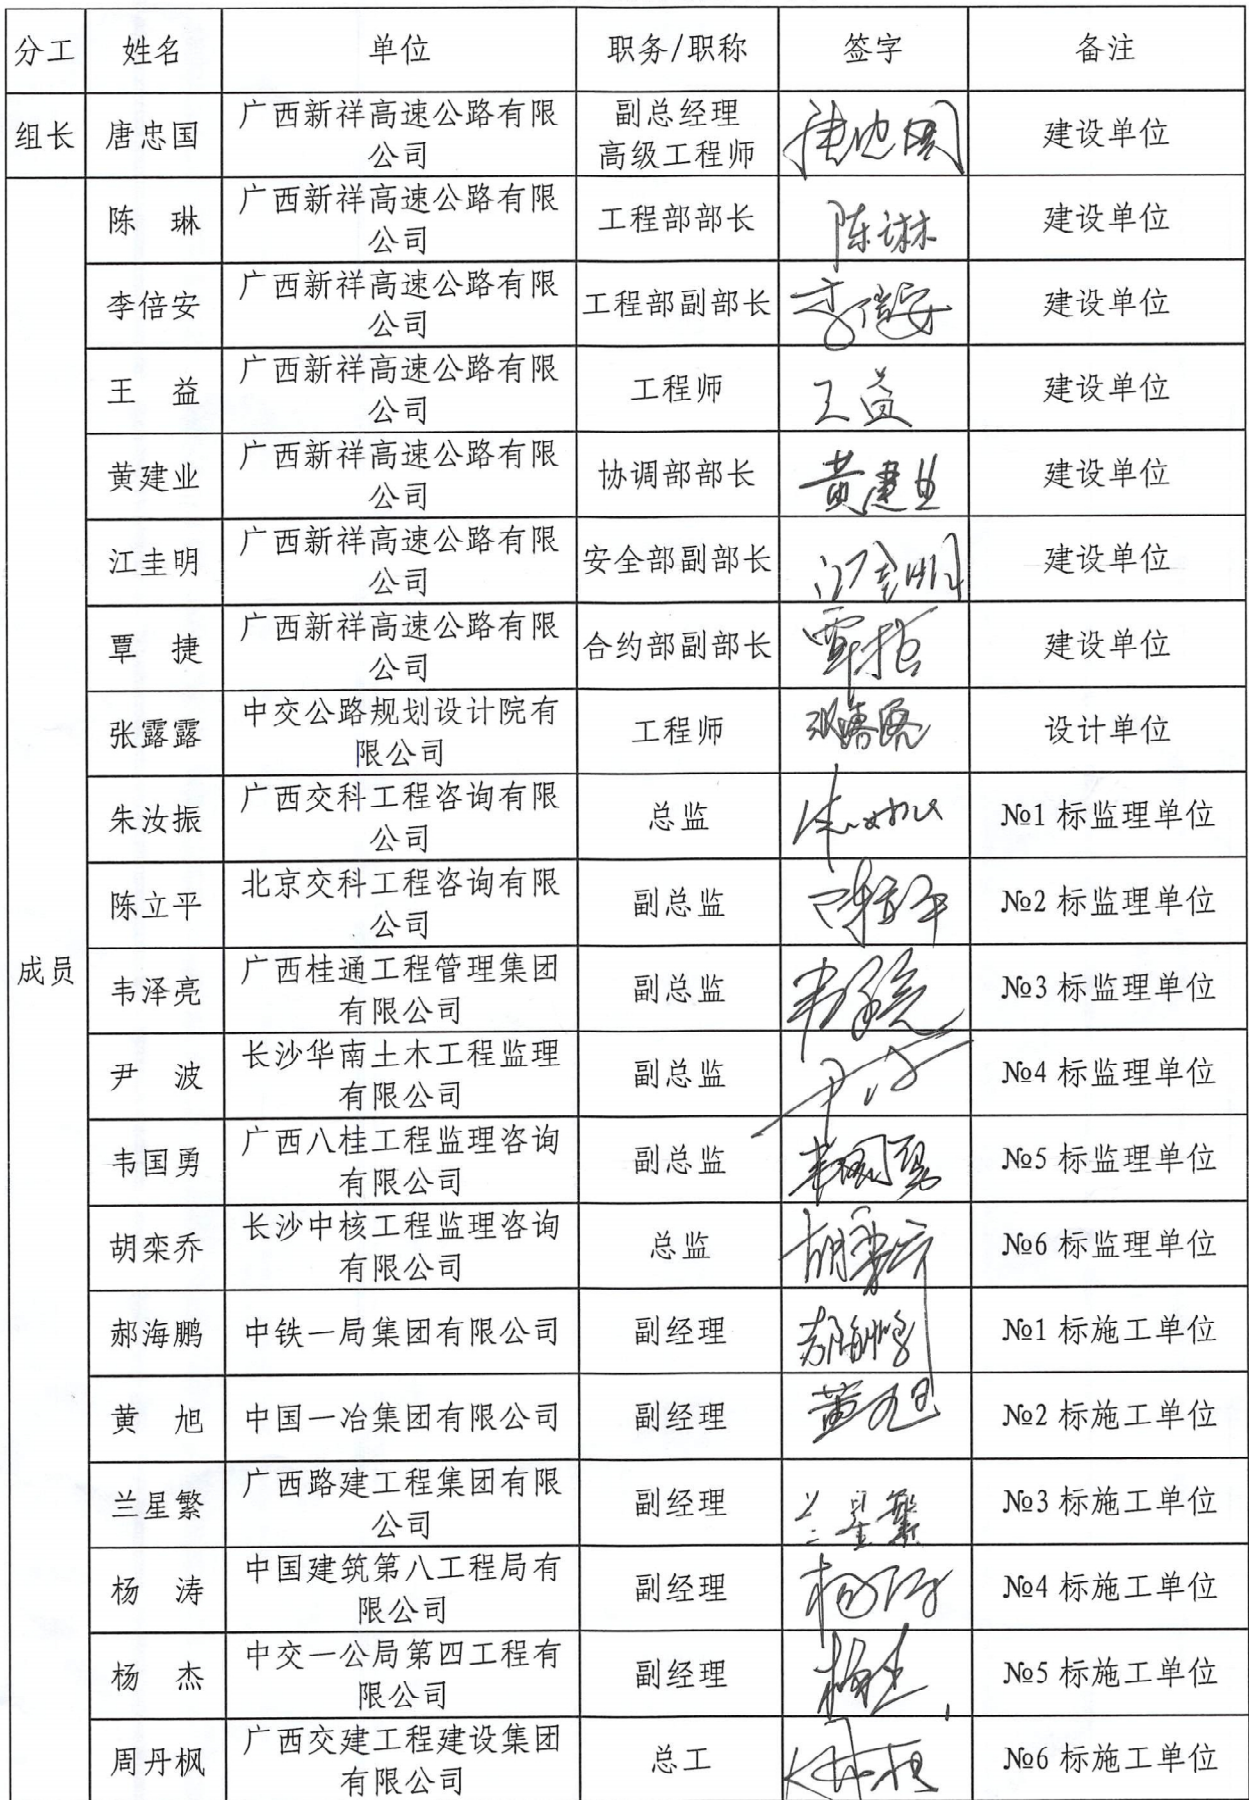 分工 姓名 单位 职务/职称 签字 备注
组长 唐忠国 广西新祥高速公路有限公司 副总经理 高级工程师 唐忠国 建设单位
成员
陈 琳 广西新祥高速公路有限公司 工程部部长 陈琳 建设单位
李倍安 广西新祥高速公路有限公司 工程部副部长 李倍安 建设单位
王 益 广西新祥高速公路有限公司 工程师 王益 建设单位
黄建业 广西新祥高速公路有限公司 协调部部长 黄建业 建设单位
江圭明 广西新祥高速公路有限公司 安全部副部长 江圭明 建设单位
覃 捷 广西新祥高速公路有限公司 合约部副部长 覃捷 建设单位
张露露 中交公路规划设计院有限公司 工程师 张露露 设计单位
朱汝振 广西交科工程咨询有限公司 总监 朱汝振 №1 标监理单位
陈立平 北京交科工程咨询有限公司 副总监 陈立平 №2 标监理单位
韦泽亮 广西桂通工程管理集团有限公司 副总监 韦泽亮 №3 标监理单位
尹 波 长沙华南土木工程监理有限公司 副总监 尹波 №4 标监理单位
韦国勇 广西八桂工程监理咨询有限公司 副总监 韦国勇 №5 标监理单位
胡栾乔 长沙中核工程监理咨询有限公司 总监 胡栾乔 №6 标监理单位
郝海鹏 中铁一局集团有限公司 副经理 郝海鹏 №1 标施工单位
黄 旭 中国一冶集团有限公司 副经理 黄旭 №2 标施工单位
兰星繁 广西路建工程集团有限公司 副经理 兰星繁 №3 标施工单位
杨 涛 中国建筑第八工程局有限公司 副经理 杨涛 №4 标施工单位
杨 杰 中交一公局第四工程有限公司 副经理 杨杰 №5 标施工单位
周丹枫 广西交建工程建设集团有限公司 总工 №6 标施工单位